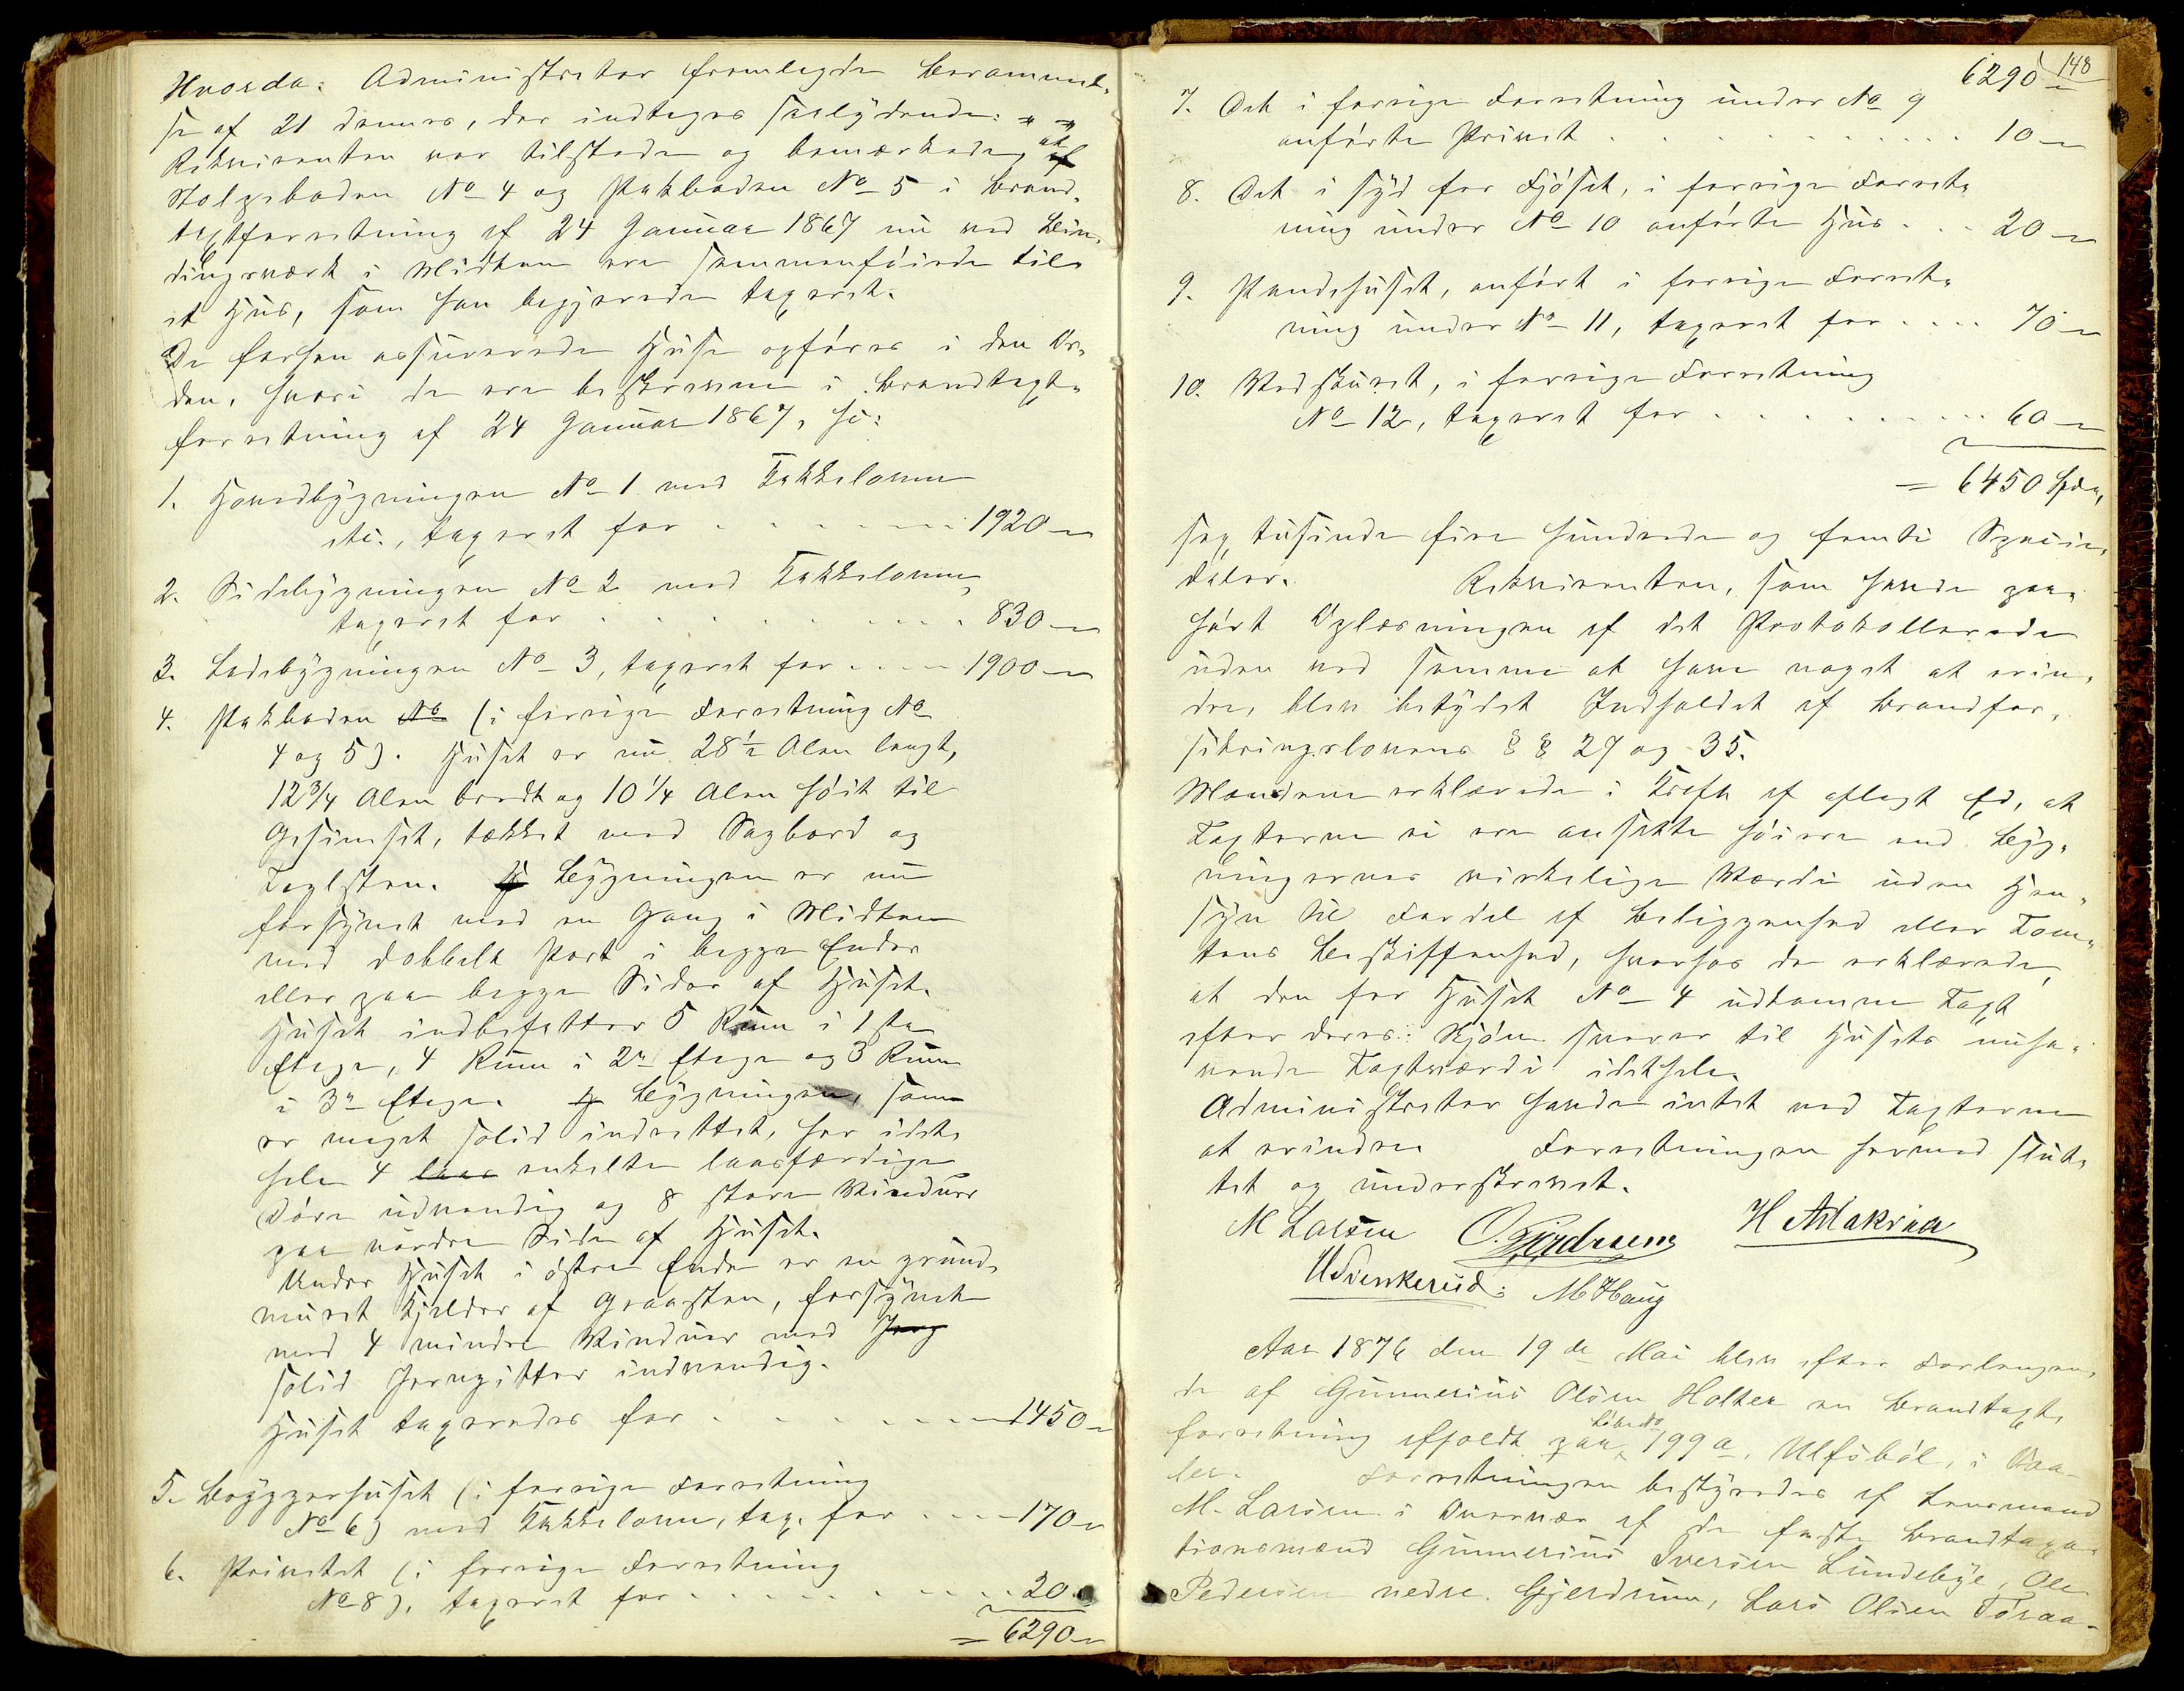 Hvorda: Administrator fremlagde Berammel-
se af 21 dennes, der indtages saalydende: " "
Rekvirenten var tilstede og bemærkede, at
Stolpeboden No 4 og Pakboden No 5 i Brand-
taxtforretning af 24 Januar 1867 nu ved Bin-
dingsværk i Midten ere sammenføiede til
et Hus, som han begjærede taxeret.
De forhen assurerede Huse opføres i den Or-
den, hvori de ere beskrevne i Brandtaxt-
forretning af 24 Januar 1867, so:
1. Hovedbygningen No 1 med Kakkelovne
etc., taxeret for 1920 "
2. Sidebygningen No 2 med Kakkelovne,
taxeret for 830 "
3. Ladebygningen No 3, taxeret for 1900 "
4. Pakboden No (i forrige Forretning No
4 og 5). Huset er nu 28½ Alen langt,
12¾ Alen bredt og 10¼ Alen høit til
Gesimset, tækket med Sagbord og
Taglsten. Bygningen er nu
forsynet med en Gang i Midten
med dobbelt Port i begge Ender
eller paa begge Sider af Huset.
Huset indbefatter 5 Rum i 1ste
Etage, 4 Rum i 2n Etage og 3 Rum
i 3n Etage. Bygningen, som
er meget solid indrettet, har idet-
hele 4 laas enkelte laasfærdige
Døre udvendig og 8 store Vinduer
paa nordre Side af Huset.
Under Huset i østre Ende er en grund-
muret Kjelder af Graasten, forsynet
med 4 mindre Vinduer med Jerng
solid Jerngitter indvendig.
Huset taxeredes for 1450 "
5. Bryggerhuset (i forrige Forretning
No 6) med Kakkelovn, tax. for 170 "
6. Privetet (i forrige Forretning
No 8), taxeret for 20 "
= 6290 "
148
6290 "
7. Det i forrige Forretning under No 9
anførte Privet 10 "
8. Det i syd for Fjøset, i forrige Forret-
ning under No 10 anførte Hus 20 "
9. Pandehuset, anført i forrige Forret-
ning under No 11, taxeret for 70 "
10. Vedskuret, i forrige Forretning
No 12, taxeret for 60 "
= 6450 Spd.,
sex tusinde fire hundrede og femti Specie-
daler. Rekvirenten, som havde paa-
hørt Oplæsningen af det Protokollerede
uden ved samme at have noget at erin-
dre, blev betydet Indholdet af Brandfor-
sikringslovens § § 27 og 35.
Mændene erklærede i Kraft af aflagt Ed, at
Taxterne ei ere ansatte høiere end Byg-
ningernes virkelige Værdi uden Hen-
syn til Fordel af Beliggenhed eller Tom-
tens Beskaffenhed, hvorhos de erklærede,
at den for Huset No 4 udkomne Taxt
efter deres Skjøn svarer til Husets nuha-
vende Taxtværdi idethele.
Administrator havde intet ved Taxterne
at erindre. Forretningen hermed slut-
tet og underskrevet.
M Larsen H Aslakrud
H Svenkerud: M Haug
Aar 1876 den 19de Mai blev efter Forlangen-
de af Gunnerius Olsen Holter en Brandtaxt-
forretning afholdt paa Løbe No 199a, Ulfsbøl, i Vaa-
ler. Forretningen bestyredes af Lensmand
M. Larsen i Overvær af de faste Brandtaxa-
tionsmænd Gunnerius Iversen Lundebye, Ole
Pedersen nedre Gjerdrum, Lars Olsen Toraa-